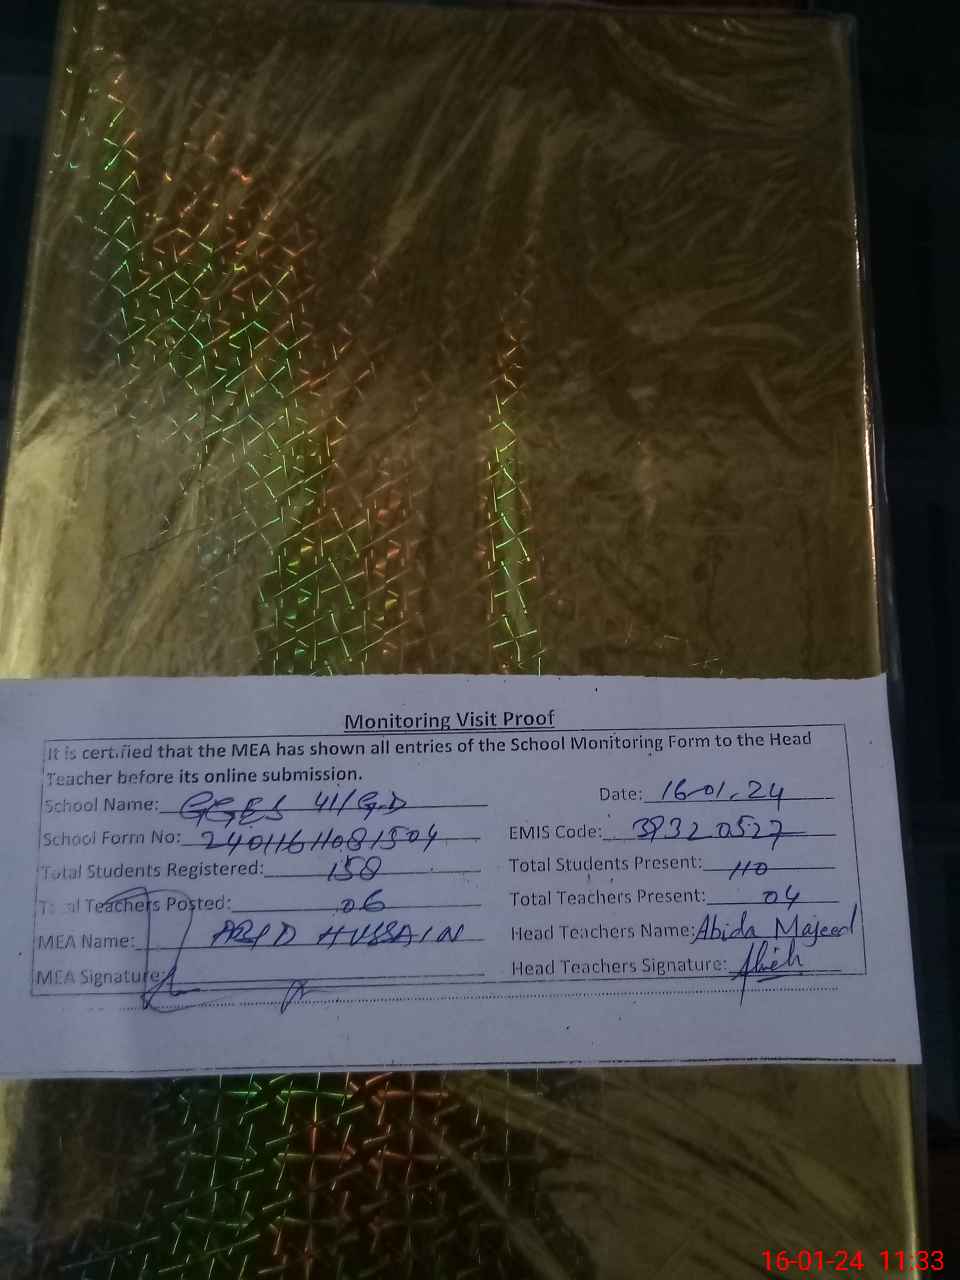 Monitoring Visit Proof
It is certified that the MEA has shown all entries of the School Monitoring Form to the Head
Teacher before its online submission.
School Name: GGES 41/G.D Date: 16-01-24
School Form No: 24011611081504 EMIS Code: 39320527
Total Students Registered: 158 Total Students Present: 110
Total Teachers Posted: 06 Total Teachers Present: 04
MEA Name: HUSSAIN Head Teachers Name: Abida Majeed
MEA Signature: Head Teachers Signature:
16-01-24 11:33